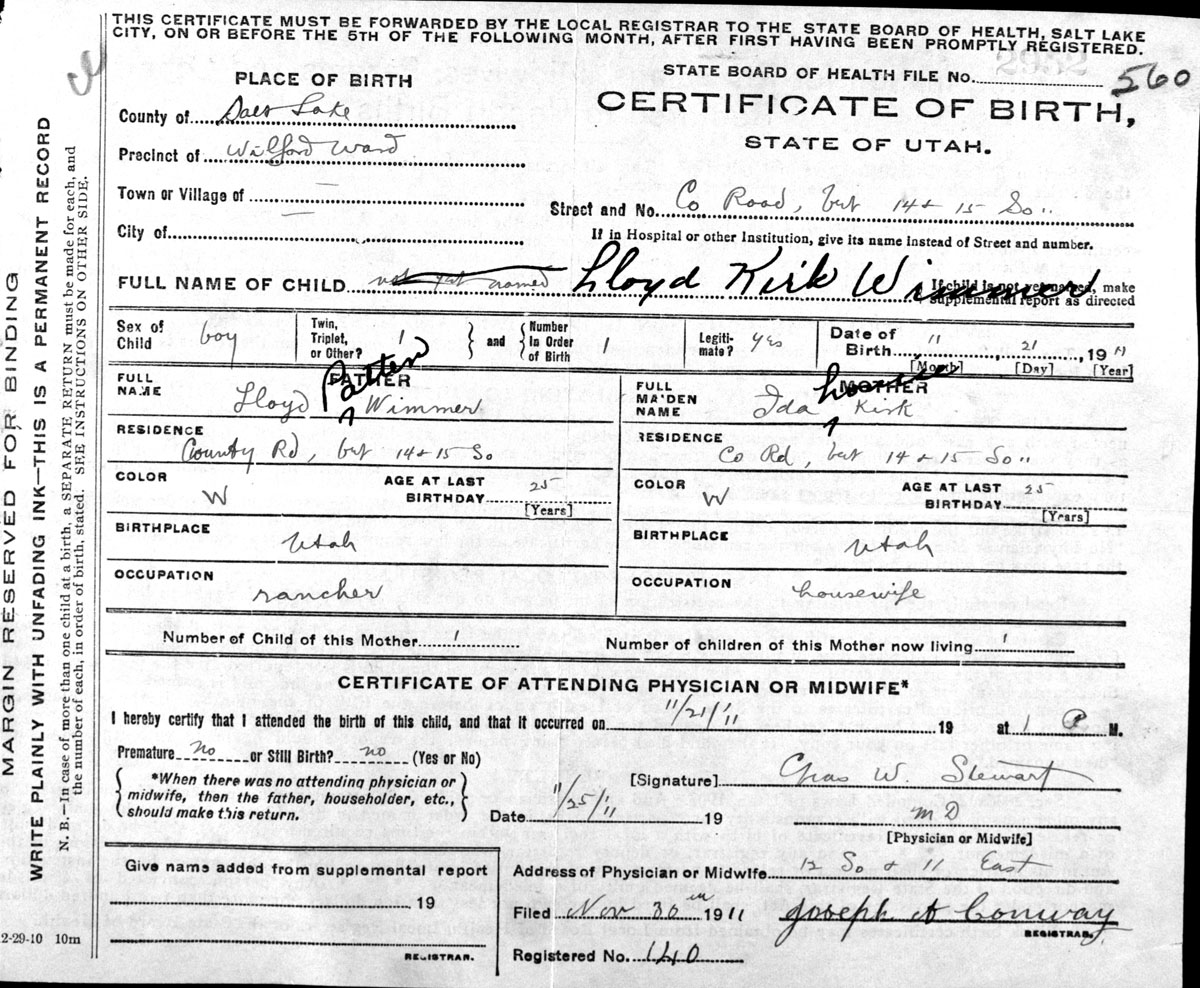 THIS CERTIFICATE MUST BE FORWARDED BY THE LOCAL REGISTRAR TO THE STATE BOARD OF HEALTH, SALT LAKE
CITY, ON OR BEFORE THE 5TH OF THE FOLLOWING MONTH, AFTER FIRST HAVING BEEN PROMPTLY REGISTERED.
MARGIN RESERVED FOR BINDING
WRITE PLAINLY WITH UNFADING INK—THIS IS A PERMANENT RECORD
N. B.—In case of more than one child at a birth, a SEPARATE RETURN must be made for each, and
the number of each, in order of birth, stated. SEE INSTRUCTIONS ON OTHER SIDE.
PLACE OF BIRTH
STATE BOARD OF HEALTH FILE No. 560
CERTIFICATE OF BIRTH,
STATE OF UTAH.
County of Salt Lake
Precinct of Wilford Ward
Town or Village of —
Street and No. Co Road, bet 14 & 15 So
City of —
If in Hospital or other Institution, give its name instead of Street and number.
FULL NAME OF CHILD not yet named Lloyd Kirk Wimmer
If child is not yet named, make
supplemental report as directed
Sex of Child boy
Twin, Triplet, or Other? 1 and Number In Order of Birth 1
Legitimate? yes
Date of Birth 11 21 1911
[Month] [Day] [Year]
FATHER
FULL NAME Lloyd Patten Wimmer
MOTHER
FULL MAIDEN NAME Ida Kirk
RESIDENCE County Rd, bet 14 & 15 So
RESIDENCE Co Rd, bet 14 & 15 So
COLOR W AGE AT LAST BIRTHDAY 25 [Years]
COLOR W AGE AT LAST BIRTHDAY 25 [Years]
BIRTHPLACE Utah
BIRTHPLACE Utah
OCCUPATION rancher
OCCUPATION housewife
Number of Child of this Mother 1
Number of children of this Mother now living 1
CERTIFICATE OF ATTENDING PHYSICIAN OR MIDWIFE*
I hereby certify that I attended the birth of this child, and that it occurred on 11/21/11 19 at 1 P. M.
Premature no or Still Birth? no (Yes or No)
*When there was no attending physician or
midwife, then the father, householder, etc.,
should make this return.
[Signature] Chas W. Stewart
Date 11/25/11 19 M D
[Physician or Midwife]
Give name added from supplemental report
19
REGISTRAR.
Address of Physician or Midwife 12 So & 11 East
Filed Nov 30 1911 Joseph A Conway
REGISTRAR.
Registered No. 140
2-29-10 10m